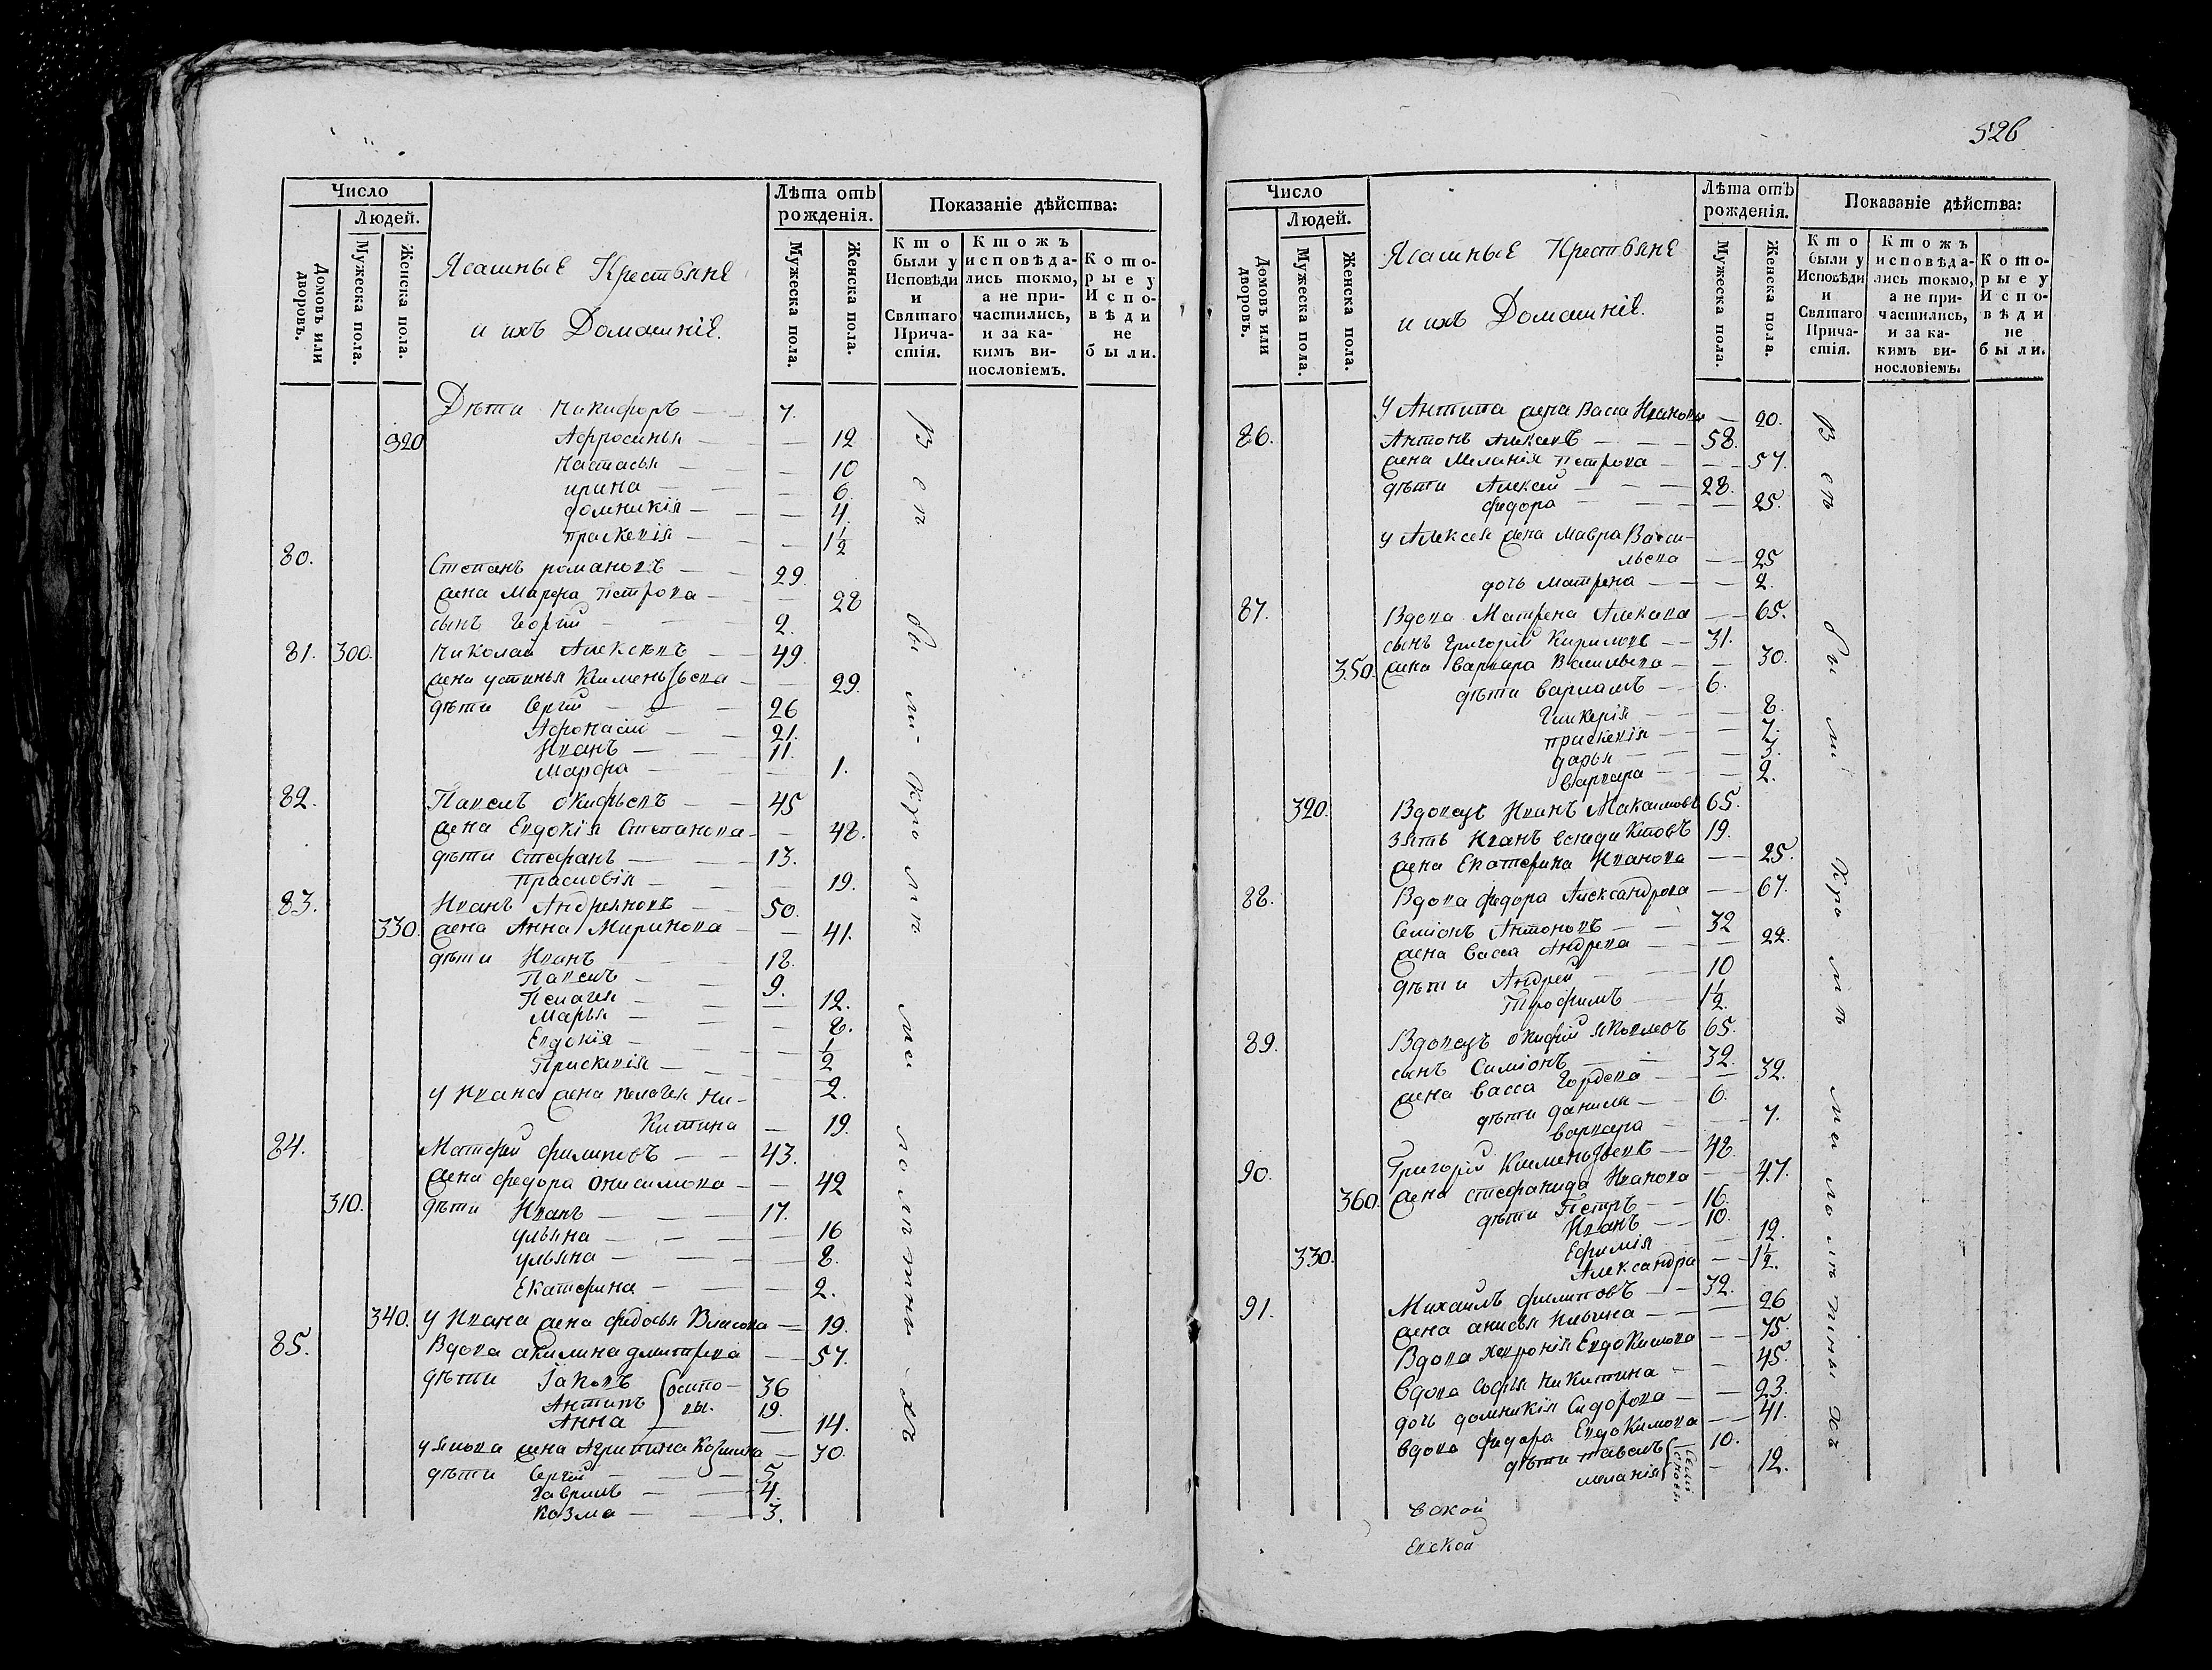 Число
Людей.
Домовъ или дворовъ.
Мужеска пола.
Женска пола.
Ясашные Крестьяне
и ихъ Домашніе.
Лѣта отъ рожденія.
Мужеска пола.
Женска пола.
Показаніе дѣйства:
Кто были у Исповѣди и Святаго Причастія.
Ктожъ исповѣдались токмо, а не причастились, и за какимъ винословіемъ.
Которые у Исповѣди не были.
Дѣти Никифоръ — 7.
320 Афросинья — 12
Настасья — 10
ирина — 6.
домникія — 4.
праскевія — 1 1/2
80. Степанъ романовъ — 29.
жена Марфа Петрова — 28
сынъ Георгий — 2.
81. 300. Николай Алексѣевъ — 49.
жена устинья Клименьтьева — 29.
дѣти Сергий — 26
Афонасий — 21.
Иванъ — 11.
Марфа — 1.
82. Павелъ Окифьевъ — 45
жена Евдокія Степанова — 48.
дѣти Стефанъ — 13.
Прасковія — 19.
83. Иванъ Андреяновъ — 50.
330. жена Анна Миринова — 41.
дѣти Иванъ — 18.
Павелъ — 9.
Пелагея — 12.
Марья — 8.
Евдокія — 1/2
Праскевія — 2.
у Ивана жена Пелагея Ни-
китина — 19.
84. Матфей филиповъ — 43.
жена федора Онисимова — 42
310. дѣти Иванъ — 17.
ульяна — 16
ульяна — 8.
Екатерина — 2.
340. у Ивана жена федосья Власова — 19.
85. Вдова акилина дмитрева — 57.
дѣти Іаковъ — 36
Антипъ осипо-вы. 19.
Анна — 14.
у Якова жена Агрипина Козмина — 30.
дѣти Сергий — 5
Гаврилъ — 4.
Козма — 3.
Всѣ были кромѣ малолѣтныхъ
526
Число
Людей.
Домовъ или дворовъ.
Мужеска пола.
Женска пола.
Ясашные Крестьяне
и ихъ Домашніе.
Лѣта отъ рожденія.
Мужеска пола.
Женска пола.
Показаніе дѣйства:
Кто были у Исповѣди и Святаго Причастія.
Ктожъ исповѣдались токмо, а не причастились, и за какимъ винословіемъ.
Которые у Исповѣди не были.
У Антипа жена Васса Иванова — 20.
86. Антонъ Алексѣевъ — 58.
жена Меланія Петрова — 57.
дѣти Алексей — 28.
федора — 25.
у Алексея жена Мавра Васи-
льева — 25
дочь Матрена — 2.
87. Вдова Матрена Алексева — 65.
сынъ Григорий Кириловъ — 31.
350. жена Варвара Васильева — 30.
дѣти Варламъ — 6.
Гликерія — 8.
праскевія — 7.
дарья — 3.
Варвара — 2.
320. Вдовецъ Иванъ Максимовъ 65.
зять Иванъ Венедиктовъ 19.
жена Екатерина Иванова — 25.
88. Вдова федора Александрова — 67.
Семіонъ Антоновъ — 32
жена Васса Андрева — 22.
дѣти Андрей — 10
Трофимъ — 1 1/2.
89. Вдовецъ Окифий Яковлевъ 65.
сынъ Симіонъ — 32.
жена Васса Гордева — 32.
дѣти данила — 6.
варвара — 7.
90. Григорий Клименьтьевъ — 48.
360. жена стефанида Иванова — 47.
дѣти Петръ — 16.
Иванъ — 10.
Ефимія — 12.
330. Александра — 1 1/2.
91. Михаилъ филиповъ — 32.
жена анисья Ильина — 26
Вдова Хеврония Евдокимова — 75.
Вдова Софья Никитина — 45.
дочь домникія Сидорова — 23.
Вдова федора Евдокимова — 41.
дѣти Павелъ 10.
меланія 12.
Семионовы
Всѣ были кромѣ малолѣтныхъ